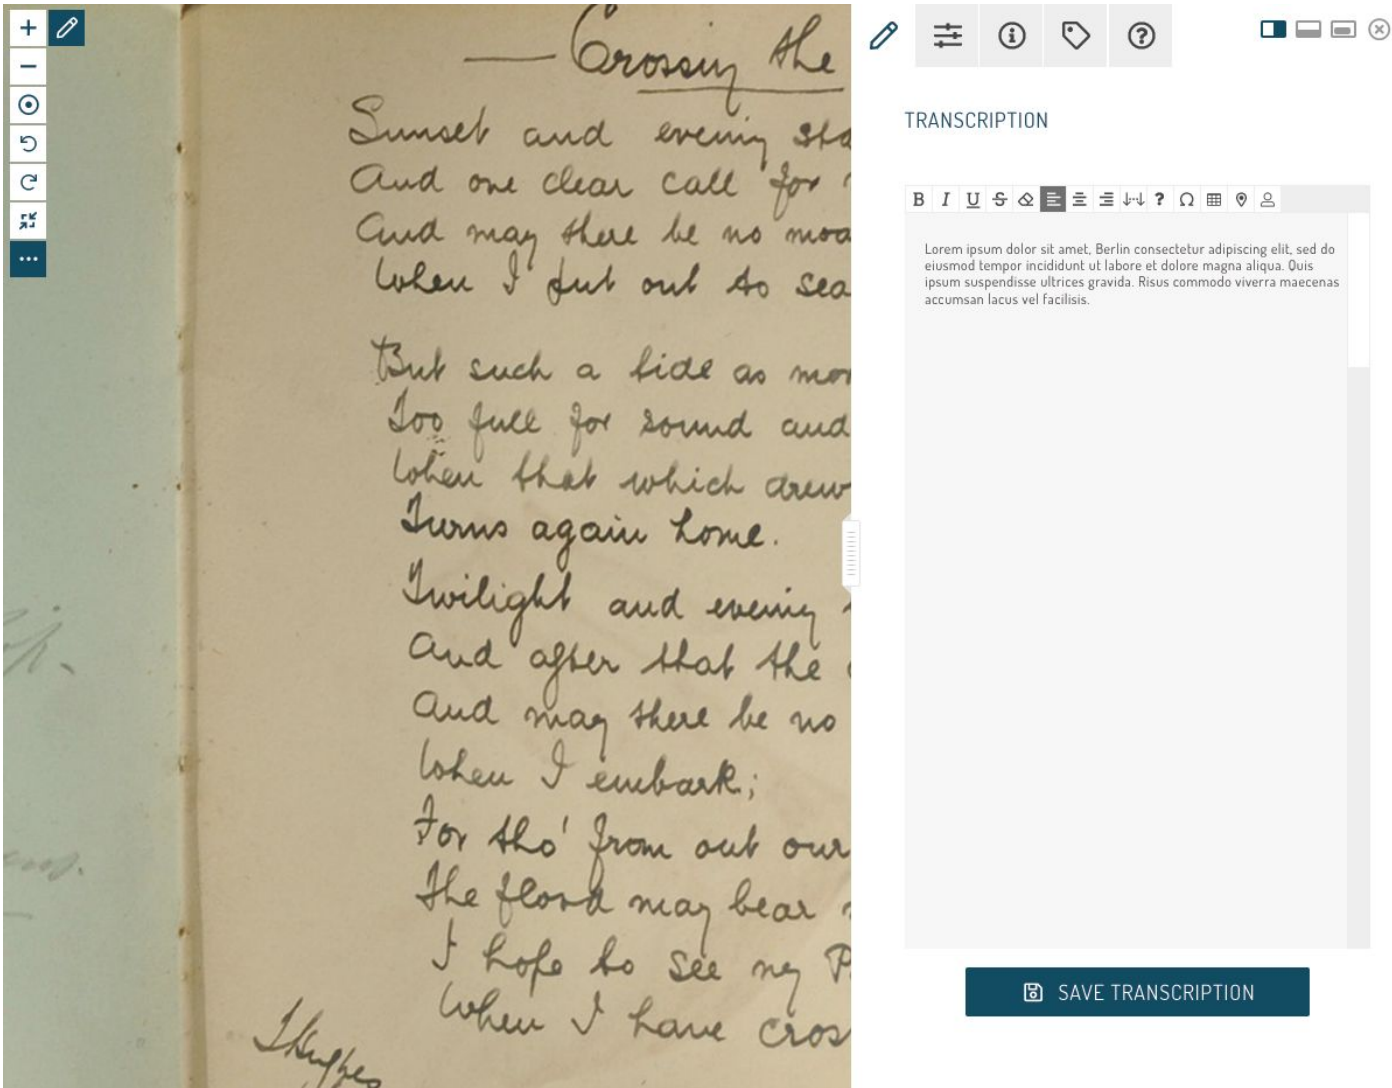 — Crossing the
Sunset and evening sta
And one clear call for
And may there be no moa
When I put out to sea
But such a tide as mov
Too full for sound and
When that which drew
Turns again home.
Twilight and evening
And after that the
And may there be no
When I embark;
For tho' from out our
The flood may bear
I hope to see my P
When I have cros
J Hughes
TRANSCRIPTION
B I U S
Lorem ipsum dolor sit amet, Berlin consectetur adipiscing elit, sed do
eiusmod tempor incididunt ut labore et dolore magna aliqua. Quis
ipsum suspendisse ultrices gravida. Risus commodo viverra maecenas
accumsan lacus vel facilisis.
SAVE TRANSCRIPTION